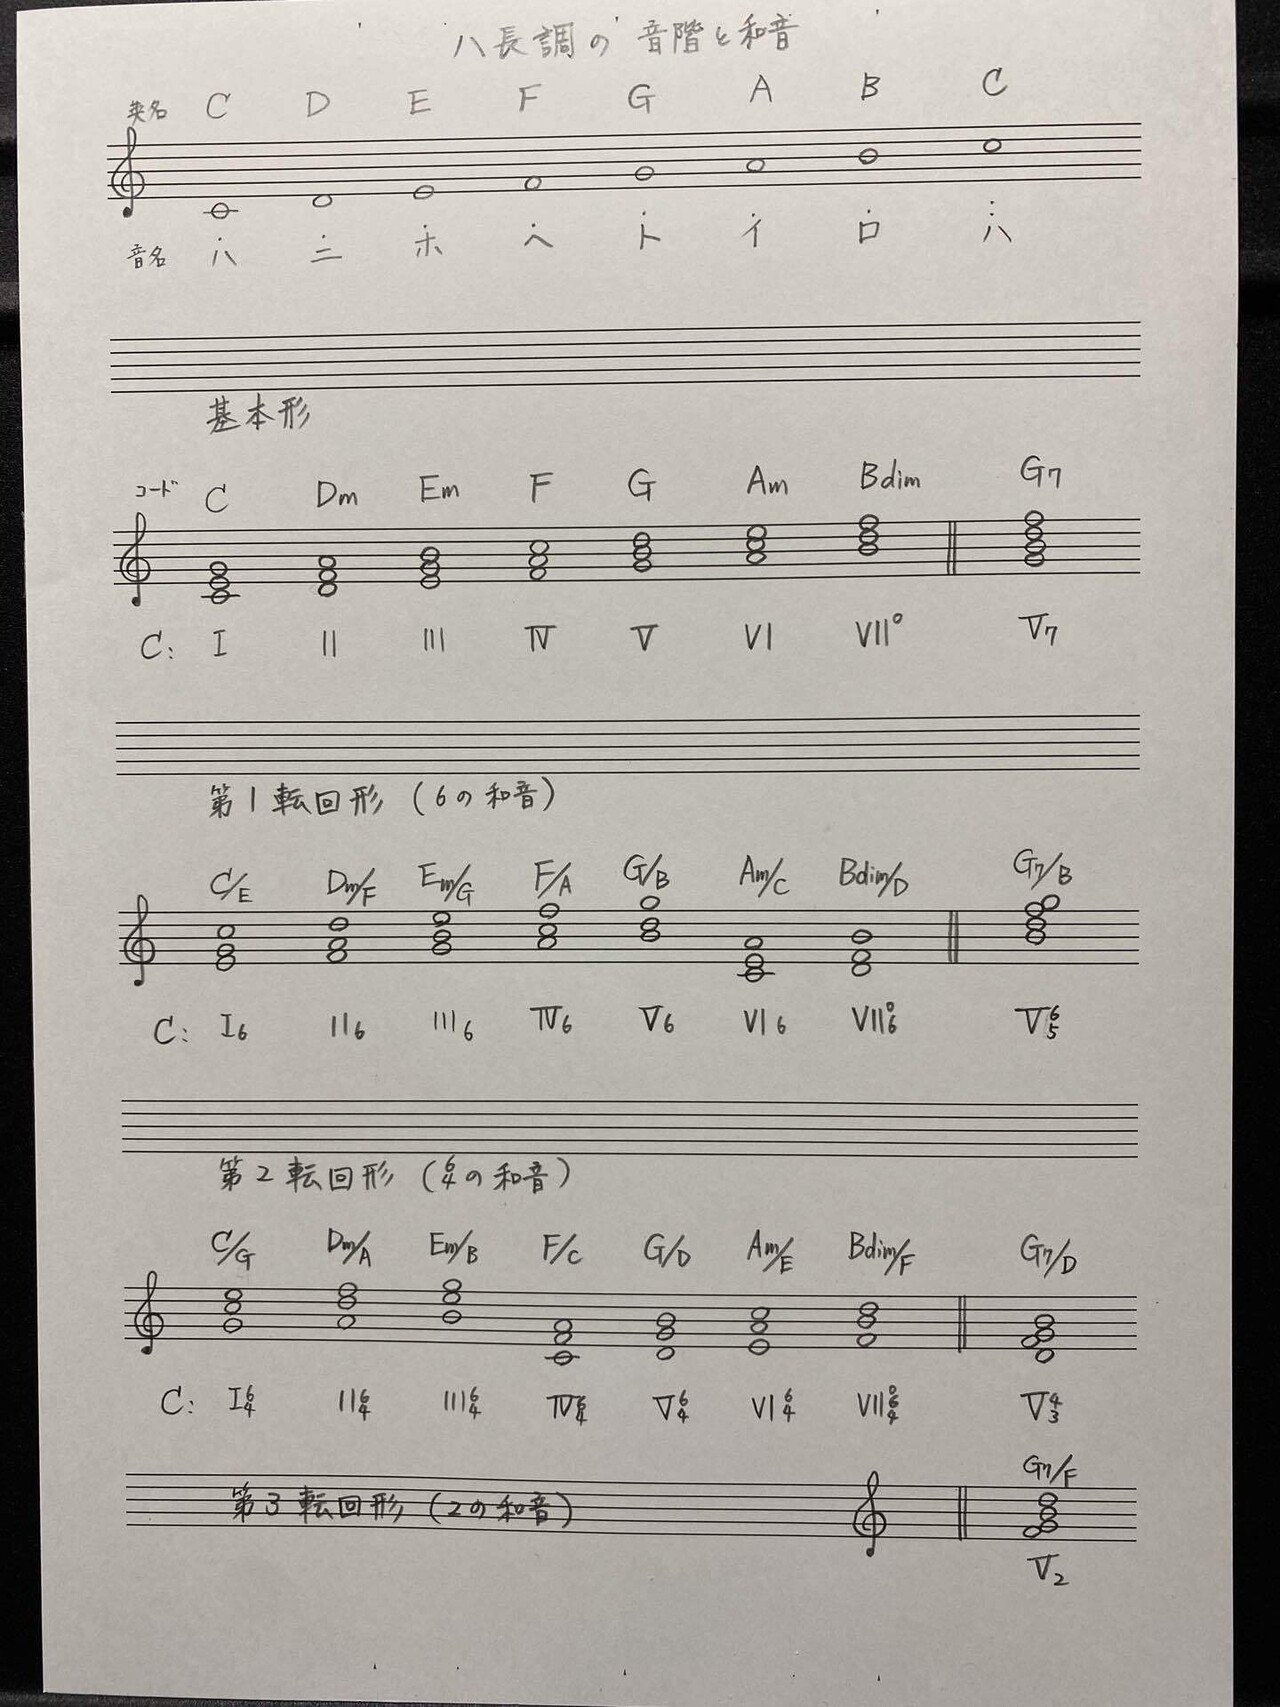 ハ長調の音階と和音
英名 C D E F G A B C
音名 ハ ニ ホ ヘ ト イ ロ ハ
基本形
コード C Dm Em F G Am Bdim G7
C: I II III IV V VI VII° V7
第1転回形 (6の和音)
C/E Dm/F Em/G F/A G/B Am/C Bdim/D G7/B
C: I6 II6 III6 IV6 V6 VI6 VII°6 V6 5
第2転回形 (6 4の和音)
C/G Dm/A Em/B F/C G/D Am/E Bdim/F G7/D
C: I6 4 II6 4 III6 4 IV6 4 V6 4 VI6 4 VII°6 4 V4 3
第3転回形 (2の和音) G7/F
V2